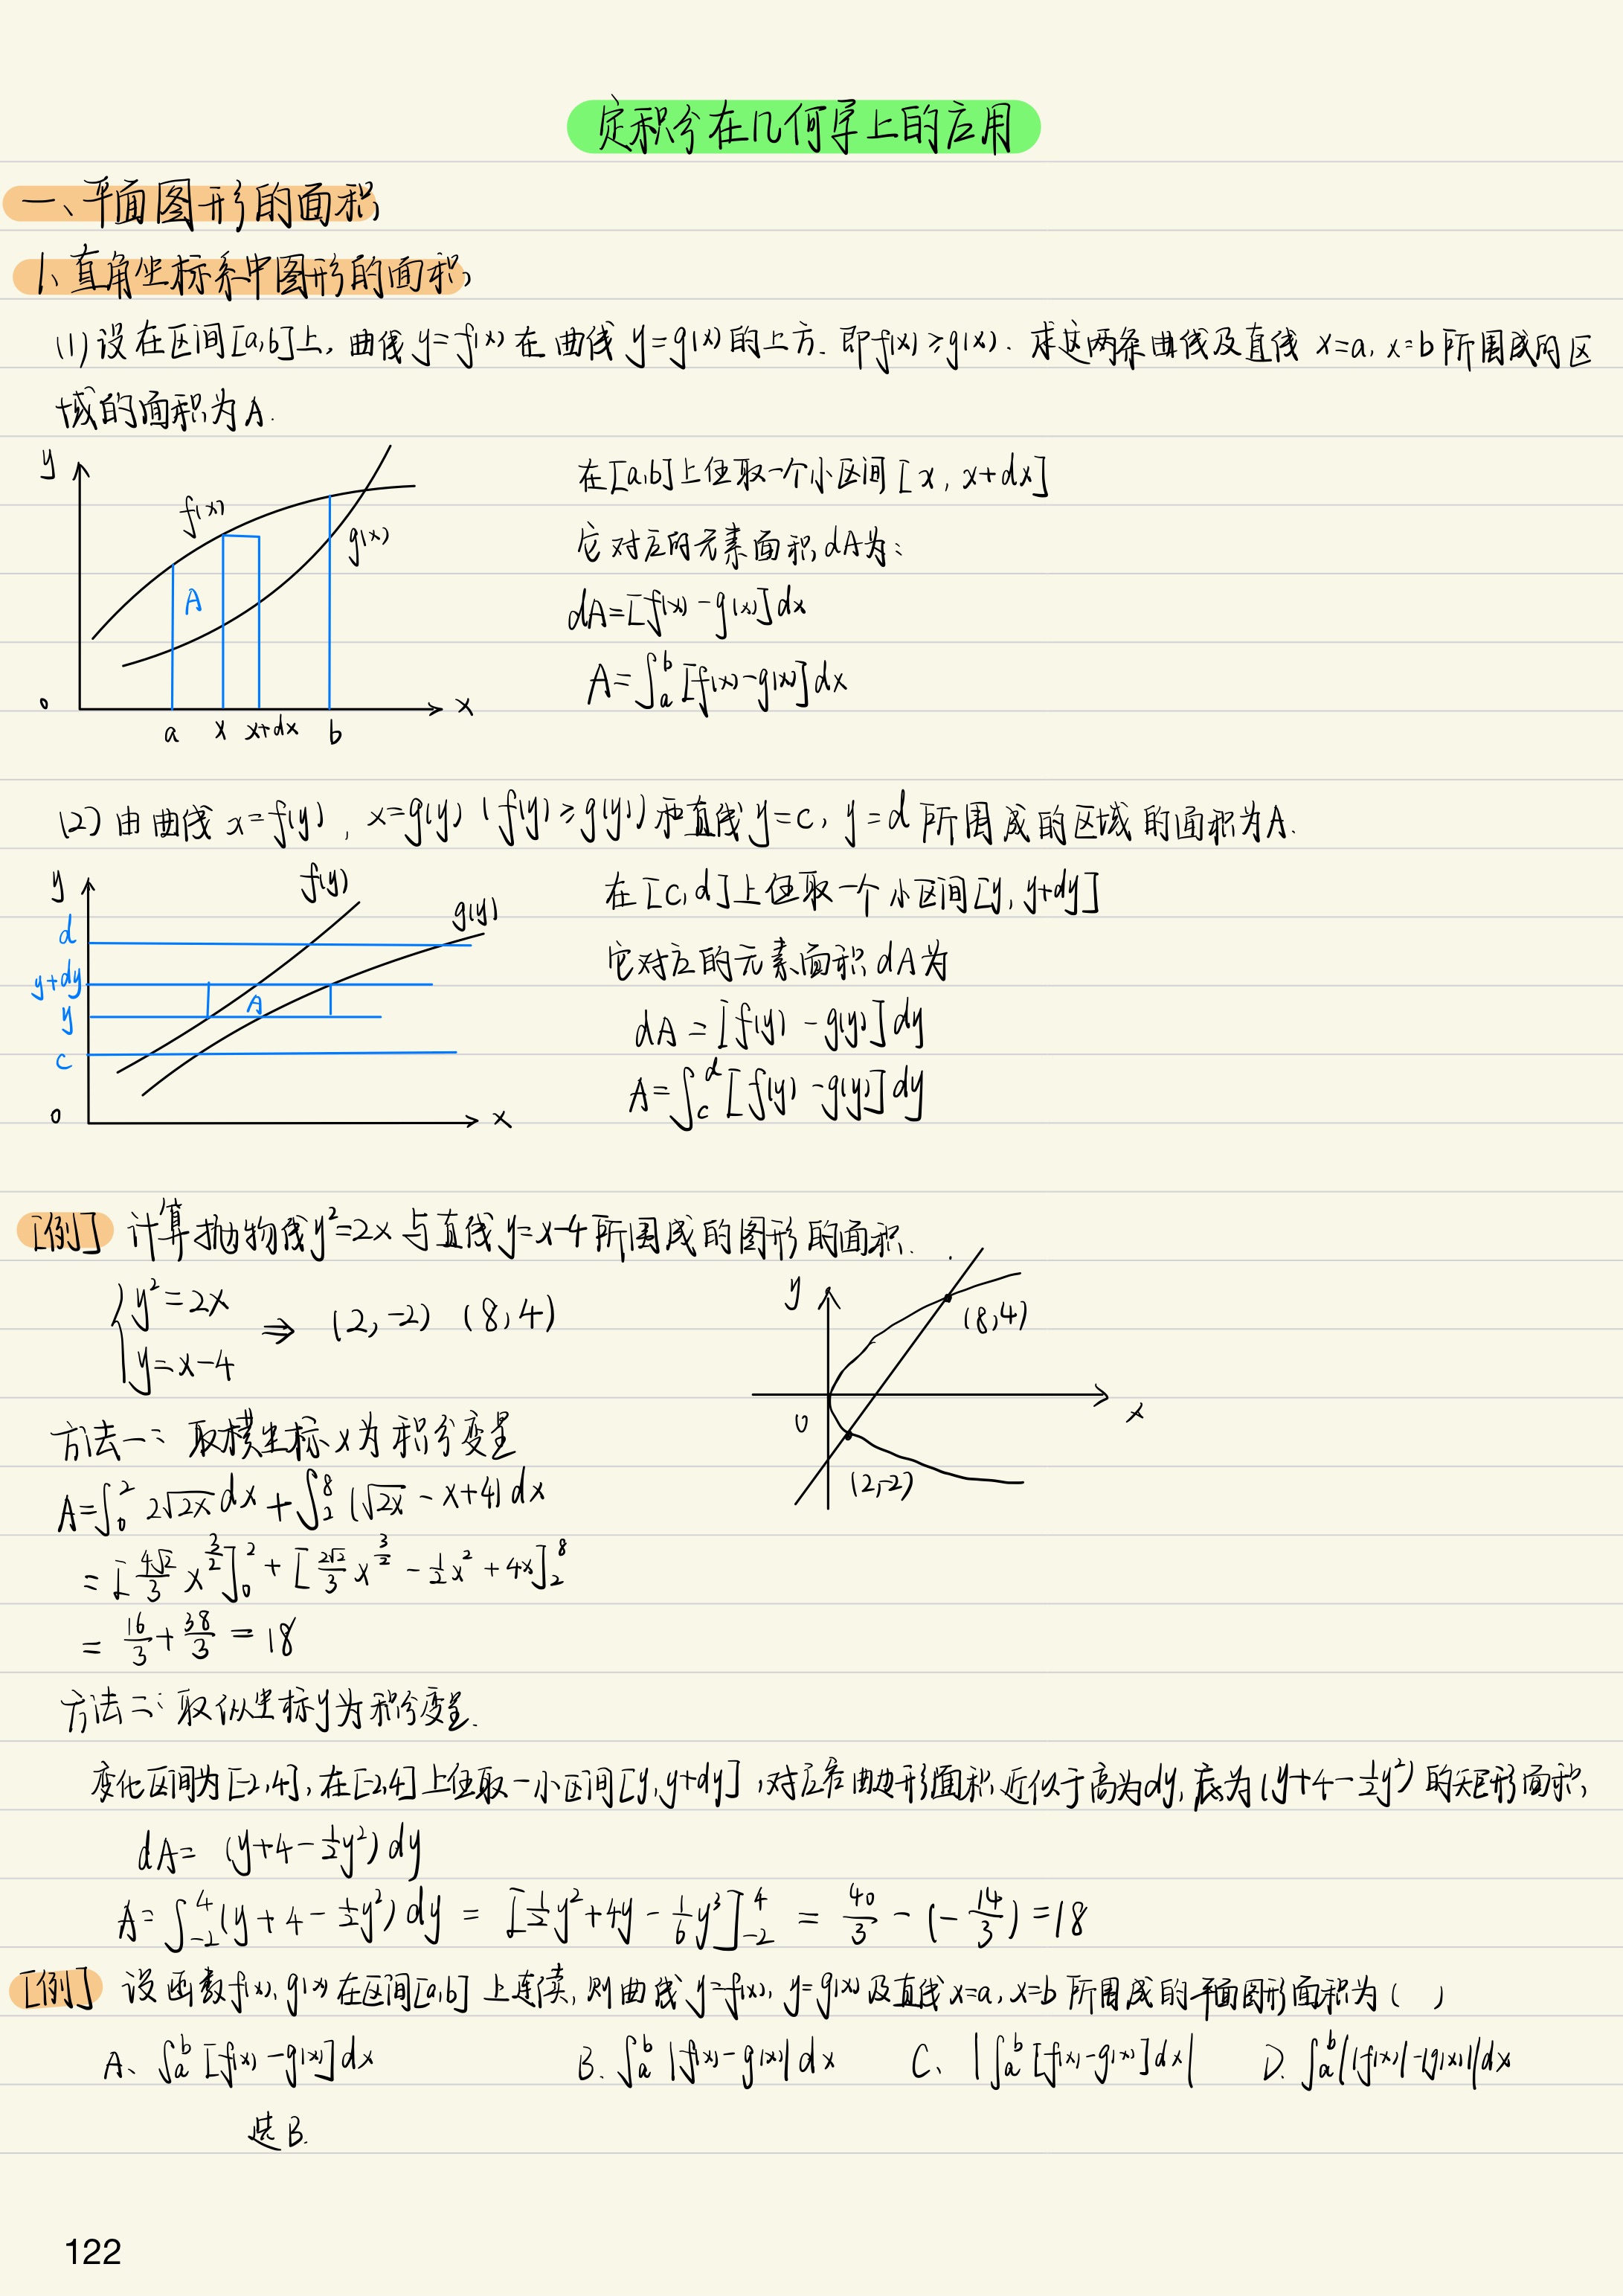 定积分在几何学上的应用
一、平面图形的面积
1、直角坐标系中图形的面积
(1) 设在区间[a,b]上, 曲线 y=f(x) 在曲线 y=g(x) 的上方. 即f(x)≥g(x). 求这两条曲线及直线 x=a, x=b 所围成的区
域的面积为A.
y
f(x)
g(x)
A
0
a x x+dx b
x
在[a,b]上任取一个小区间 [x, x+dx]
它对应的元素面积 dA为:
dA=[f(x)-g(x)]dx
A=∫_a^b [f(x)-g(x)]dx
(2) 由曲线 x=f(y), x=g(y) (f(y)≥g(y)) 和直线 y=c, y=d 所围成的区域的面积为A.
y
f(y)
g(y)
d
y+dy
A
y
c
0
x
在[c,d]上任取一个小区间[y, y+dy]
它对应的元素面积 dA为
dA=[f(y)-g(y)]dy
A=∫_c^d [f(y)-g(y)]dy
[例] 计算抛物线y²=2x与直线y=x-4所围成的图形的面积.
{y²=2x
y=x-4 ⇒ (2,-2) (8,4)
y
(8,4)
0
x
(2,-2)
方法一: 取横坐标x为积分变量
A=∫_0^2 2√(2x) dx + ∫_2^8 (√(2x) - x+4) dx
= [4√2/3 x^(3/2)]_0^2 + [2√2/3 x^(3/2) - 1/2 x² + 4x]_2^8
= 16/3 + 38/3 = 18
方法二: 取纵坐标y为积分变量.
变化区间为[-2,4], 在[-2,4]上任取一小区间[y, y+dy], 对应窄曲边形面积近似于高为dy, 底为(y+4-1/2y²)的矩形面积,
dA= (y+4-1/2y²) dy
A=∫_{-2}^4 (y+4-1/2y²) dy = [1/2y²+4y-1/6y³]_{-2}^4 = 40/3 - (-14/3) = 18
[例] 设函数f(x), g(x)在区间[a,b]上连续, 则曲线 y=f(x), y=g(x)及直线x=a, x=b所围成的平面图形面积为 ( )
A、∫_a^b [f(x)-g(x)]dx B. ∫_a^b |f(x)-g(x)| dx C、|∫_a^b [f(x)-g(x)]dx| D. ∫_a^b ||f(x)|-|g(x)||dx
选B.
122